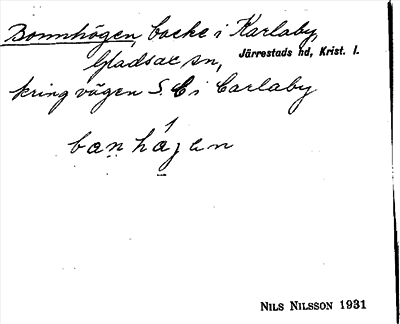 Bonnhögen, backe i Karlaby
Gladsax sn, Järrestads hd, Krist. l.
kring vägen S. i Carlaby
NILS NILSSON 1931